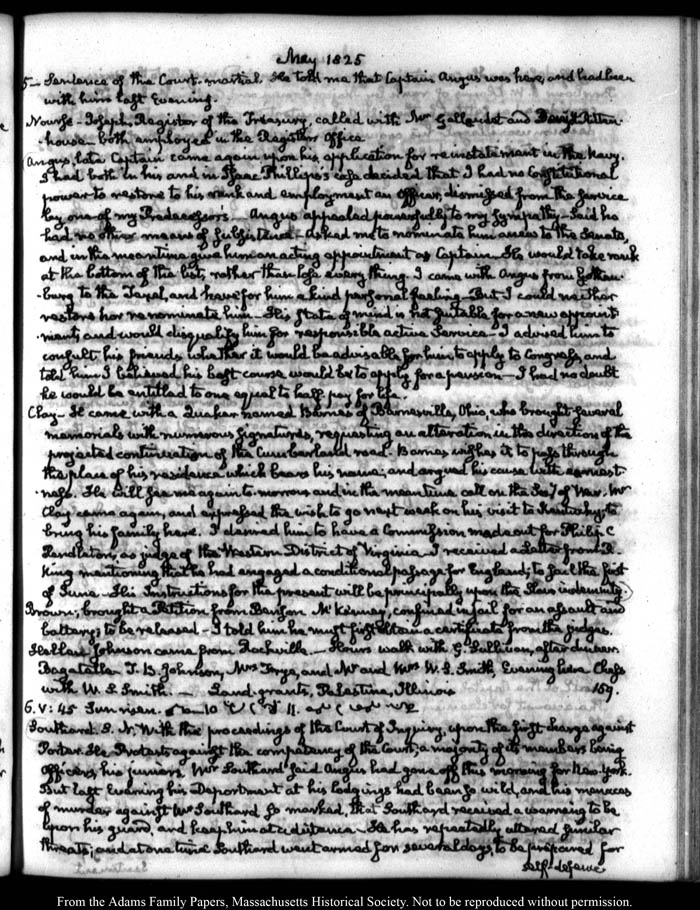 May 1825
5— Sentence of the Court martial. He told me that Captain Angus was here, and had been
with him last Evening.
Nourse— Joseph, Register of the Treasury, called with Mr Gallaudet and Ritten-
-house— both employed in the Register Office
Angus, late Captain came again upon his application for reinstatement in the Navy.
I had both in his and in Isaac Phillips's case decided that I had no Constitutional
power to restore to his rank and employment an Officer, dismissed from the Service
by one of my Predecessors— Angus appealed powerfully to my Sympathy— Said he
had no other means of Subsistence— Asked me to nominate him anew to the Senate,
and in the meantime give him an acting appointment as Captain. He would take rank
at the bottom of the list, rather than lose every thing. I came with Angus from Gotten-
-burg to the Texel, and have for him a kind personal feeling— But I could neither
restore nor renominate him— His state of mind is not suitable for a new appoint-
-ment; and would disqualify him for responsible active Service— I advised him to
consult his friends, whether it would be advisable for him to apply to Congress, and
told him I believed his best course would be to apply for a pension— I had no doubt
he would be entitled to one equal to half pay for life.
Clay— H. came with a Quaker named Barnes of Barnesville, Ohio, who brought several
memorials with numerous signatures, requesting an alteration in the direction of the
projected continuation of the Cumberland road. Barnes wishes it to pass through
the place of his residence which bears his name; and argued his cause with earnest-
-ness. He will see me again to-morrow and in the meantime call on the Secy of War. Mr
Clay came again, and expressed the wish to go next week on his visit to Kentucky; to
bring his family here. I desired him to have a Commission made out for Philip C
Pendleton, as judge of the Western District of Virginia— I received a Letter from R.
King mentioning that he had engaged a conditional passage for England; to sail the first
of June. His Instructions for the present will be principally upon the Slave indemnity.
Brown; brought a Petition from Benjan McKenney, confined in jail for an assault and
battery; to be released— I told him he must first obtain a certificate from the judges.
Hellen Johnson came from Rockville.— Hours walk with G. Sullivan, after dinner.
Bagatelle. T. B. Johnson, Mrs Frye, and Mr and Mrs W. S. Smith, Evening here Chess
with W. S. Smith.— Land-grants, Palestine, Illinois 159.
6. V: 45 Sun risen.
Southard. S. N. With the proceedings of the Court of Inquiry, upon the first charge against
Porter. He Protests against the competency of the Court; a majority of its members being
Officers, his juniors. Mr Southard said Angus had gone off this morning for New-York.
But last Evening his Deportment at his lodgings had been so wild, and his menaces
of murder against Mr Southard so marked, that Southard received a warning to be
upon his guard, and keep him at a distance— He has repeatedly uttered similar
threats; and at one time Southard went armed for several days, to be prepared for
self-defence
From the Adams Family Papers, Massachusetts Historical Society. Not to be reproduced without permission.